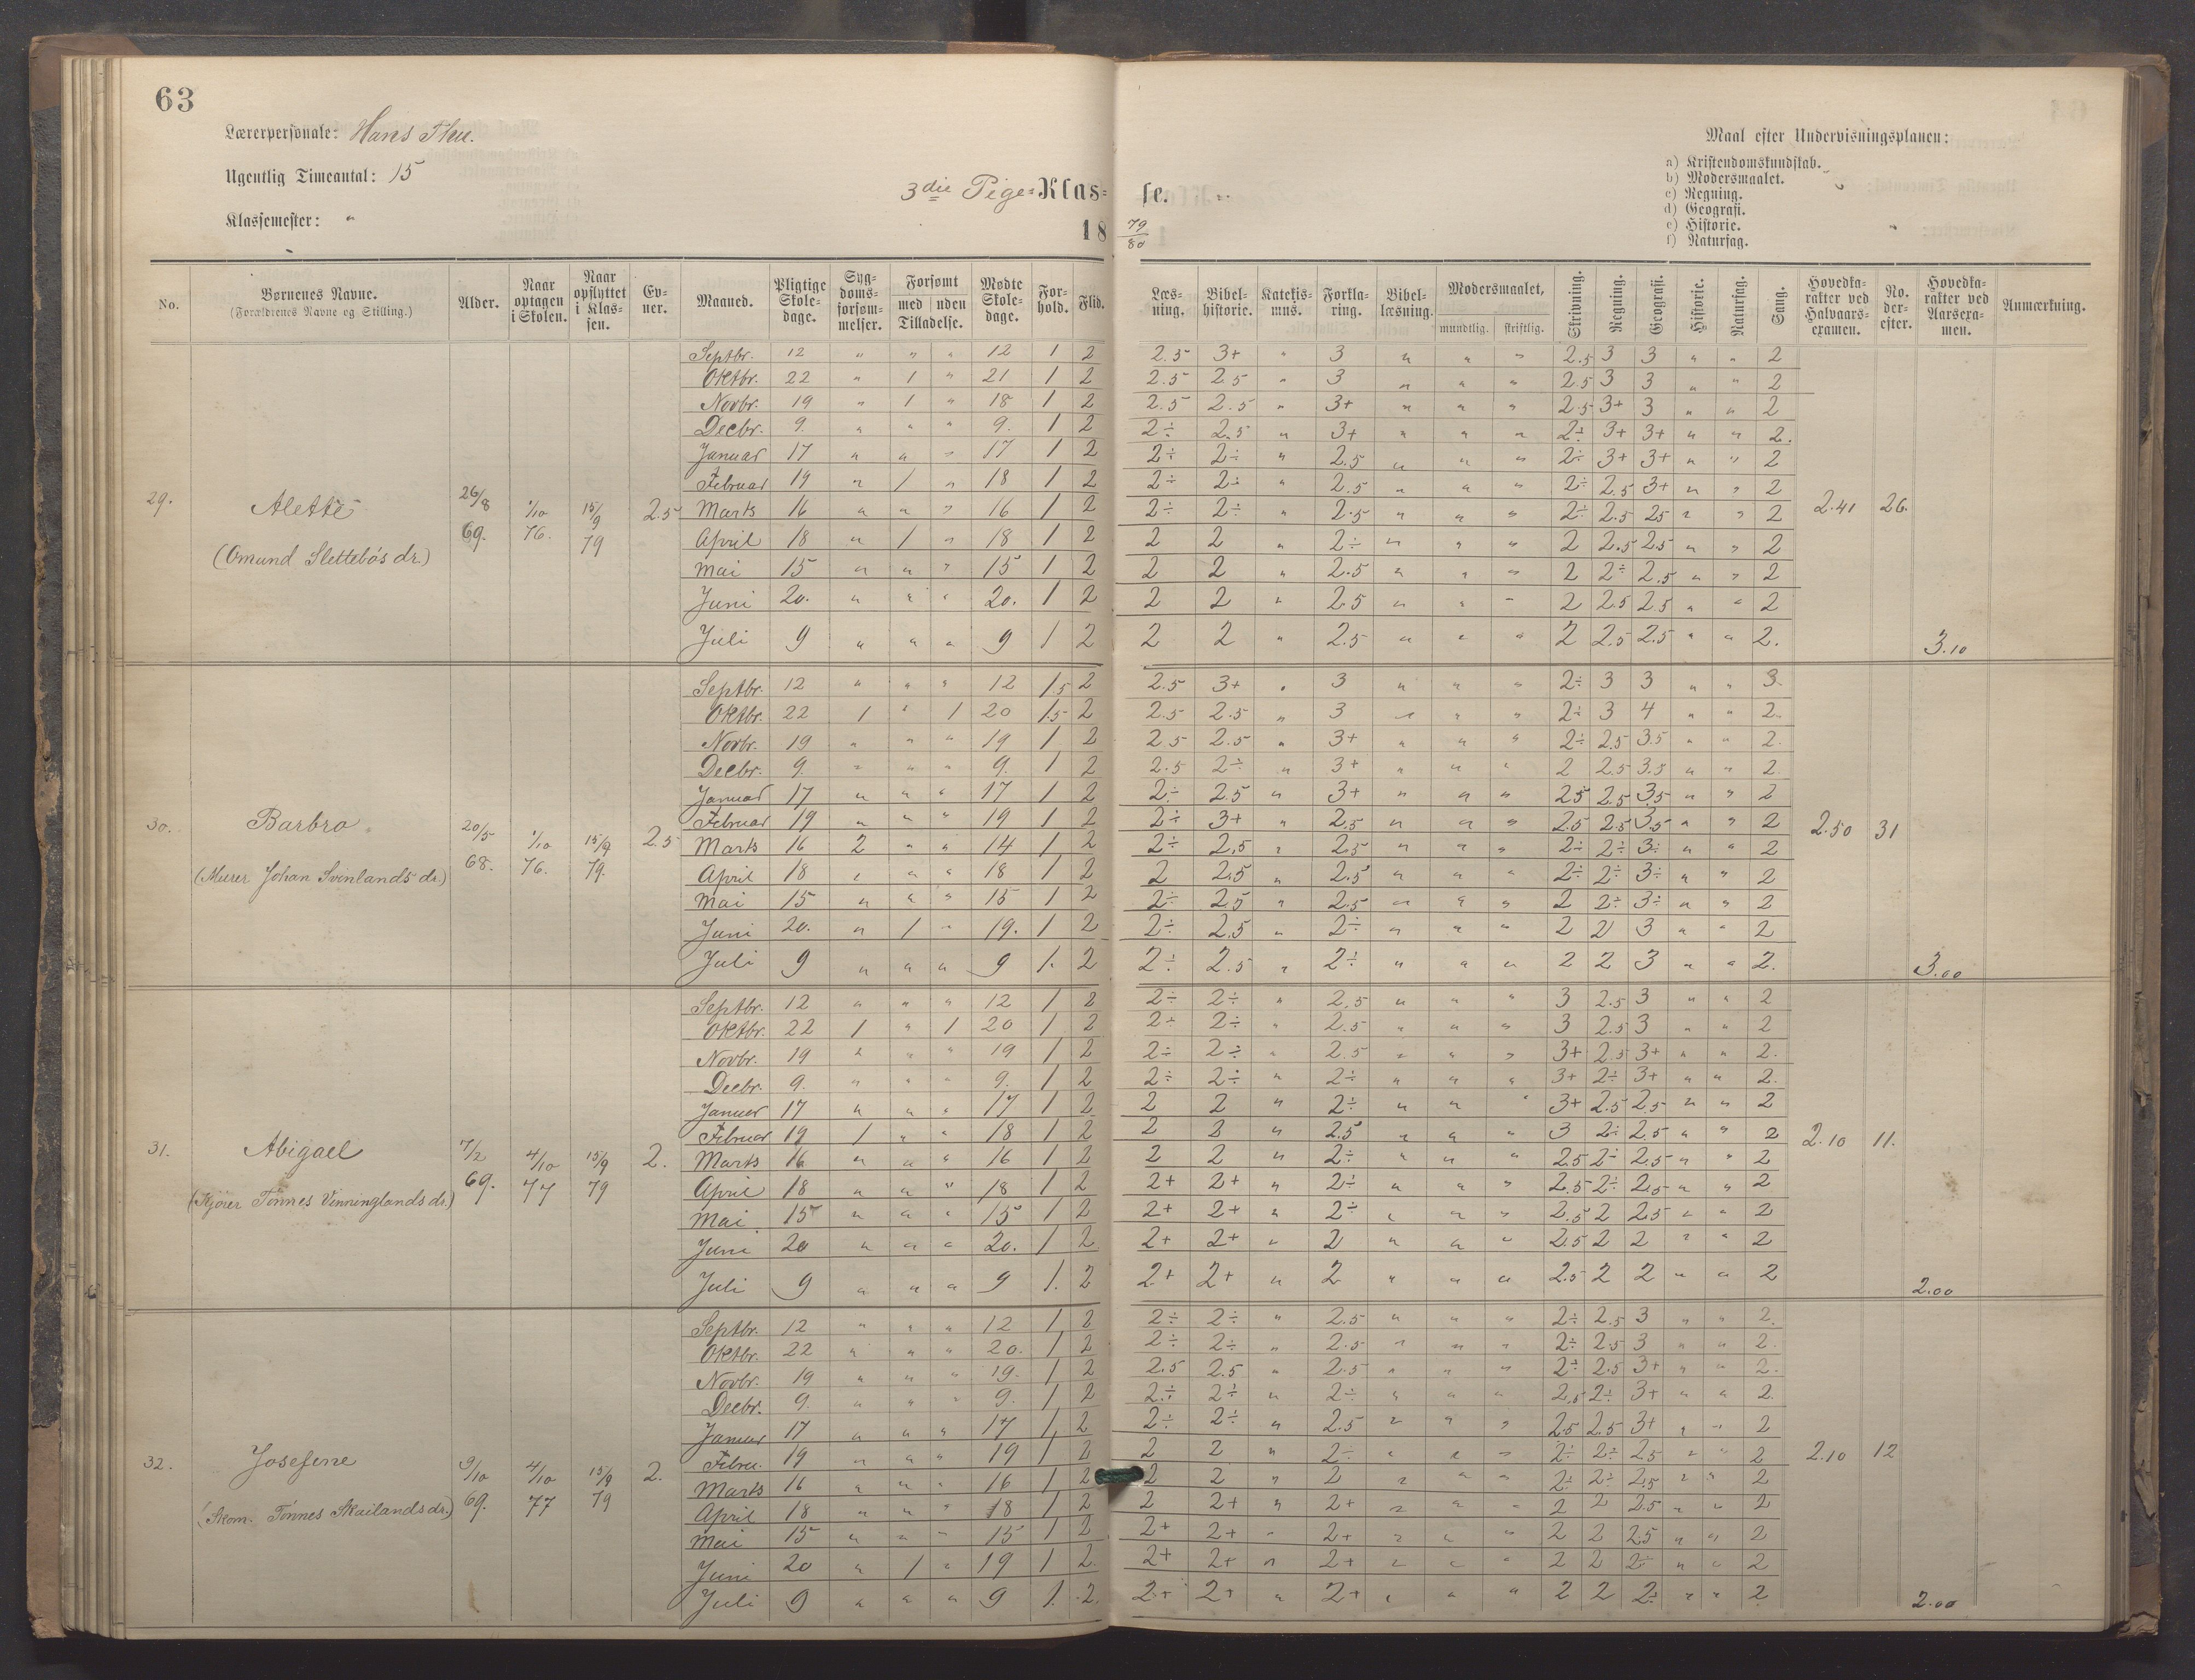 63
Lærerpersonale: Hans Thu.
Ugentlig Timeantal: 15
Klassemester: "
3die Pige= Klasse.
18 79/80
Maal efter Undervisningsplanen:
a) Kristendomskundskab.
b) Modersmaalet.
c) Regning.
d) Geografi.
e) Historie.
f) Naturfag.
No. | Børnenes Navne. (Forældrenes Navne og Stilling.) | Alder. | Naar optagen i Skolen. | Naar opflyttet i Klassen. | Evner. | Maaned. | Pligtige Skoledage. | Sygdomsforsømmelser. | Forsømt med / uden Tilladelse. | Mødte Skoledage. | Forhold. | Flid. | Læsning. | Bibelhistorie. | Katekismus. | Forklaring. | Bibellæsning. | Modersmaalet, mundtlig. / skriftlig. | Skrivning. | Regning. | Geografi. | Historie. | Naturfag. | Sang. | Hovedkarakter ved Halvaarsexamen. | No. derefter. | Hovedkarakter ved Aarsexamen. | Anmærkning.
29. Alette (Omund Slettebös dr.) 26/8 69. 1/10 76. 15/9 79 2.5 2.41 26. 3.10
Septbr. 12 " " " 12 1 2 2.5 3+ " 3 " " " 2.5 3 3 " " 2
Oktbr. 22 " 1 " 21 1 2 2.5 2.5 " 3 " " " 2.5 3 3 " " 2
Novbr. 19 " 1 " 18 1 2 2.5 2.5 " 3+ " " " 2.5 3+ 3 " " 2
Decbr. 9. " " " 9. 1 2 2÷ 2.5 " 3+ " " " 2÷ 3+ 3+ " " 2.
Januar 17 " " " 17 1 2 2÷ 2÷ " 2.5 " " " 2÷ 3+ 3+ " " 2
Februar 19 " 1 " 18 1 2 2÷ 2÷ " 2.5 " " " 2÷ 2.5 3+ " " 2
Marts 16 " " " 16 1 2 2÷ 2÷ " 2.5 " " " 2÷ 2.5 25 " " 2
April 18 " 1 " 18 1 2 2 2 " 2÷ " " " 2 2.5 2.5 " " 2
Mai 15 " " " 15 1 2 2 2 " 2.5 " " " 2 2÷ 2.5 " " 2
Juni 20. " " " 20. 1 2 2 2 " 2.5 " " " 2 2.5 2.5 " " 2
Juli 9 " " " 9 1 2 2 2 " 2.5 " " " 2 2.5 2.5 " " 2.
30. Barbro (Murer Johan Svinlands dr.) 20/5 68. 1/10 76. 15/9 79. 2.5 2.50 31 3.00
Septbr. 12 " " " 12 1.5 2 2.5 3+ " 3 " " " 2÷ 3 3 " " 3.
Oktbr. 22 1 " 1 20 1.5 2 2.5 2.5 " 3 " " " 2÷ 3 4 " " 2.
Novbr. 19 " " " 19 1 2 2.5 2.5 " 3+ " " " 2÷ 2.5 3.5 " " 2.
Decbr. 9. " " " 9. 1 2 2.5 2÷ " 3+ " " " 2 2.5 3.5 " " 2.
Januar 17 " " " 17 1 2 2÷ 2.5 " 3+ " " " 25 2.5 3.5 " " 2
Februar 19 " " " 19 1 2 2÷ 3+ " 2.5 " " " 2.5 2.5 3.5 " " 2
Marts 16 2 " " 14 1 2 2÷ 2.5 " 2.5 " " " 2÷ 2÷ 3÷ " " 2
April 18 " " " 18 1 2 2 2.5 " 2.5 " " " 2÷ 2÷ 3÷ " " 2
Mai 15 " " " 15 1 2 2÷ 2.5 " 2.5 " " " 2 2÷ 3÷ " " 2
Juni 20. " 1 " 19. 1 2 2÷ 2.5 " 2÷ " " " 2 2 3 " " 2
Juli 9 " " " 9 1. 2 2÷ 2.5 " 2÷ " " " 2 2 3 " " 2.
31. Abigael (Kjörer Tönnes Vinninglands dr.) 7/2 69. 4/10 77 15/9 79 2. 2.10 11. 2.00
Septbr. 12 " " " 12 1 2 2÷ 2÷ " 2.5 " " " 3 2.5 3 " " 2
Oktbr. 22 1 " 1 20 1 2 2÷ 2÷ " 2.5 " " " 3 2.5 3 " " 2
Novbr. 19 " " " 19 1 2 2÷ 2÷ " 2.5 " " " 3+ 2.5 3+ " " 2.
Decbr. 9. " " " 9. 1 2 2÷ 2÷ " 2÷ " " " 3+ 2÷ 3+ " " 2.
Januar 17 " " " 17 1 2 2 2 " 2÷ " " " 3+ 2.5 2.5 " " 2
Februar 19 1 " " 18 1 2 2 2 " 2.5 " " " 3 2÷ 2.5 " " 2
Marts 16 " " " 16 1 2 2 2 " 2÷ " " " 2.5 2÷ 2.5 " " 2
April 18 " " " 18 1 2 2+ 2+ " 2÷ " " " 2.5 2÷ 2.5 " " 2
Mai 15 " " " 15 1 2 2+ 2+ " 2÷ " " " 2.5 2 25 " " 2
Juni 20 " " " 20. 1 2 2+ 2+ " 2 " " " 2.5 2 2 " " 2
Juli 9 " " " 9 1. 2 2+ 2+ " 2 " " " 2.5 2 2 " " 2
32. Josefine (Skom. Tönnes Skailands dr.) 9/10 69. 4/10 77 15/9 79 2. 2.10 12 2.00
Septbr. 12 " " " 12 1 2 2÷ 2÷ " 2.5 " " " 2÷ 2.5 3 " " 2.
Oktbr. 22 " " " 20. 1 2 2÷ 2÷ " 2.5 " " " 2÷ 2.5 3 " " 2.
Novbr. 19 " " " 19. 1 2 2.5 2.5 " 2.5 " " " 2÷ 2.5 3+ " " 2.
Decbr. 9. " " " 9. 1 2 2÷ 2÷ " 2÷ " " " 2.5 2÷ 3+ " " 2.
Januar 17 " " " 17 1. 2 2÷ 2÷ " 2.5 " " " 25 2.5 3+ " " 2
Febru. 19 " " " 19 1 2 2 2 " 2÷ " " " 2÷ 2÷ 2.5 " " 2
Marts 16 " " " 16 1 2 2 2 " 2 " " " 2÷ 2÷ 2.5 " " 2
April 18 " " " 18 1 2 2 2+ " 2+ " " " 2 2 2.5 " " 2
Mai 15 " " " 15 1 2 2+ 2+ " 2+ " " " 2 2 2.5 " " 2
Juni 20 " 1 " 19 1 2. 2+ 2+ " 2+ " " " 2 2 2÷ " " 2
Juli 9 " " " 9 1. 2. 2+ 2+ " 2+ " " " 2 2 2÷ " " 2